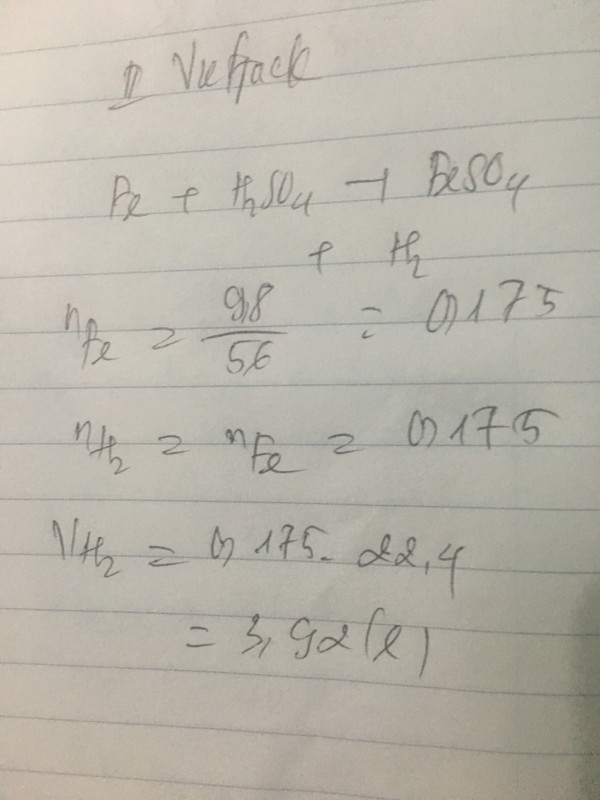 Fe + H₂SO₄ → FeSO₄
+ H₂
nFe = 9,8/56 = 0,175
nH₂ = nFe = 0,175
VH₂ = 0,175. 22,4
= 3,92(l)